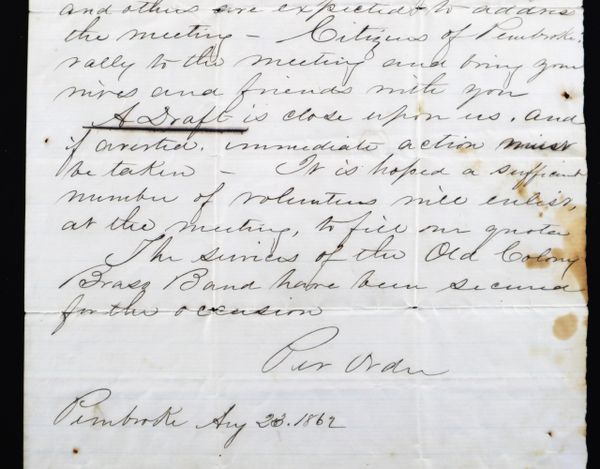 and others are expected to address
the meeting – Citizens of Pembroke,
rally to the meeting and bring your
wives and friends with you
A Draft is close upon us, and
if averted, immediate action must
be taken – It is hoped a sufficient
number of volunteers will enlist,
at the meeting, to fill our quota
The services of the Old Colony
Brass Band have been secured
for the occasion
Per Order
Pembroke Aug 23. 1862